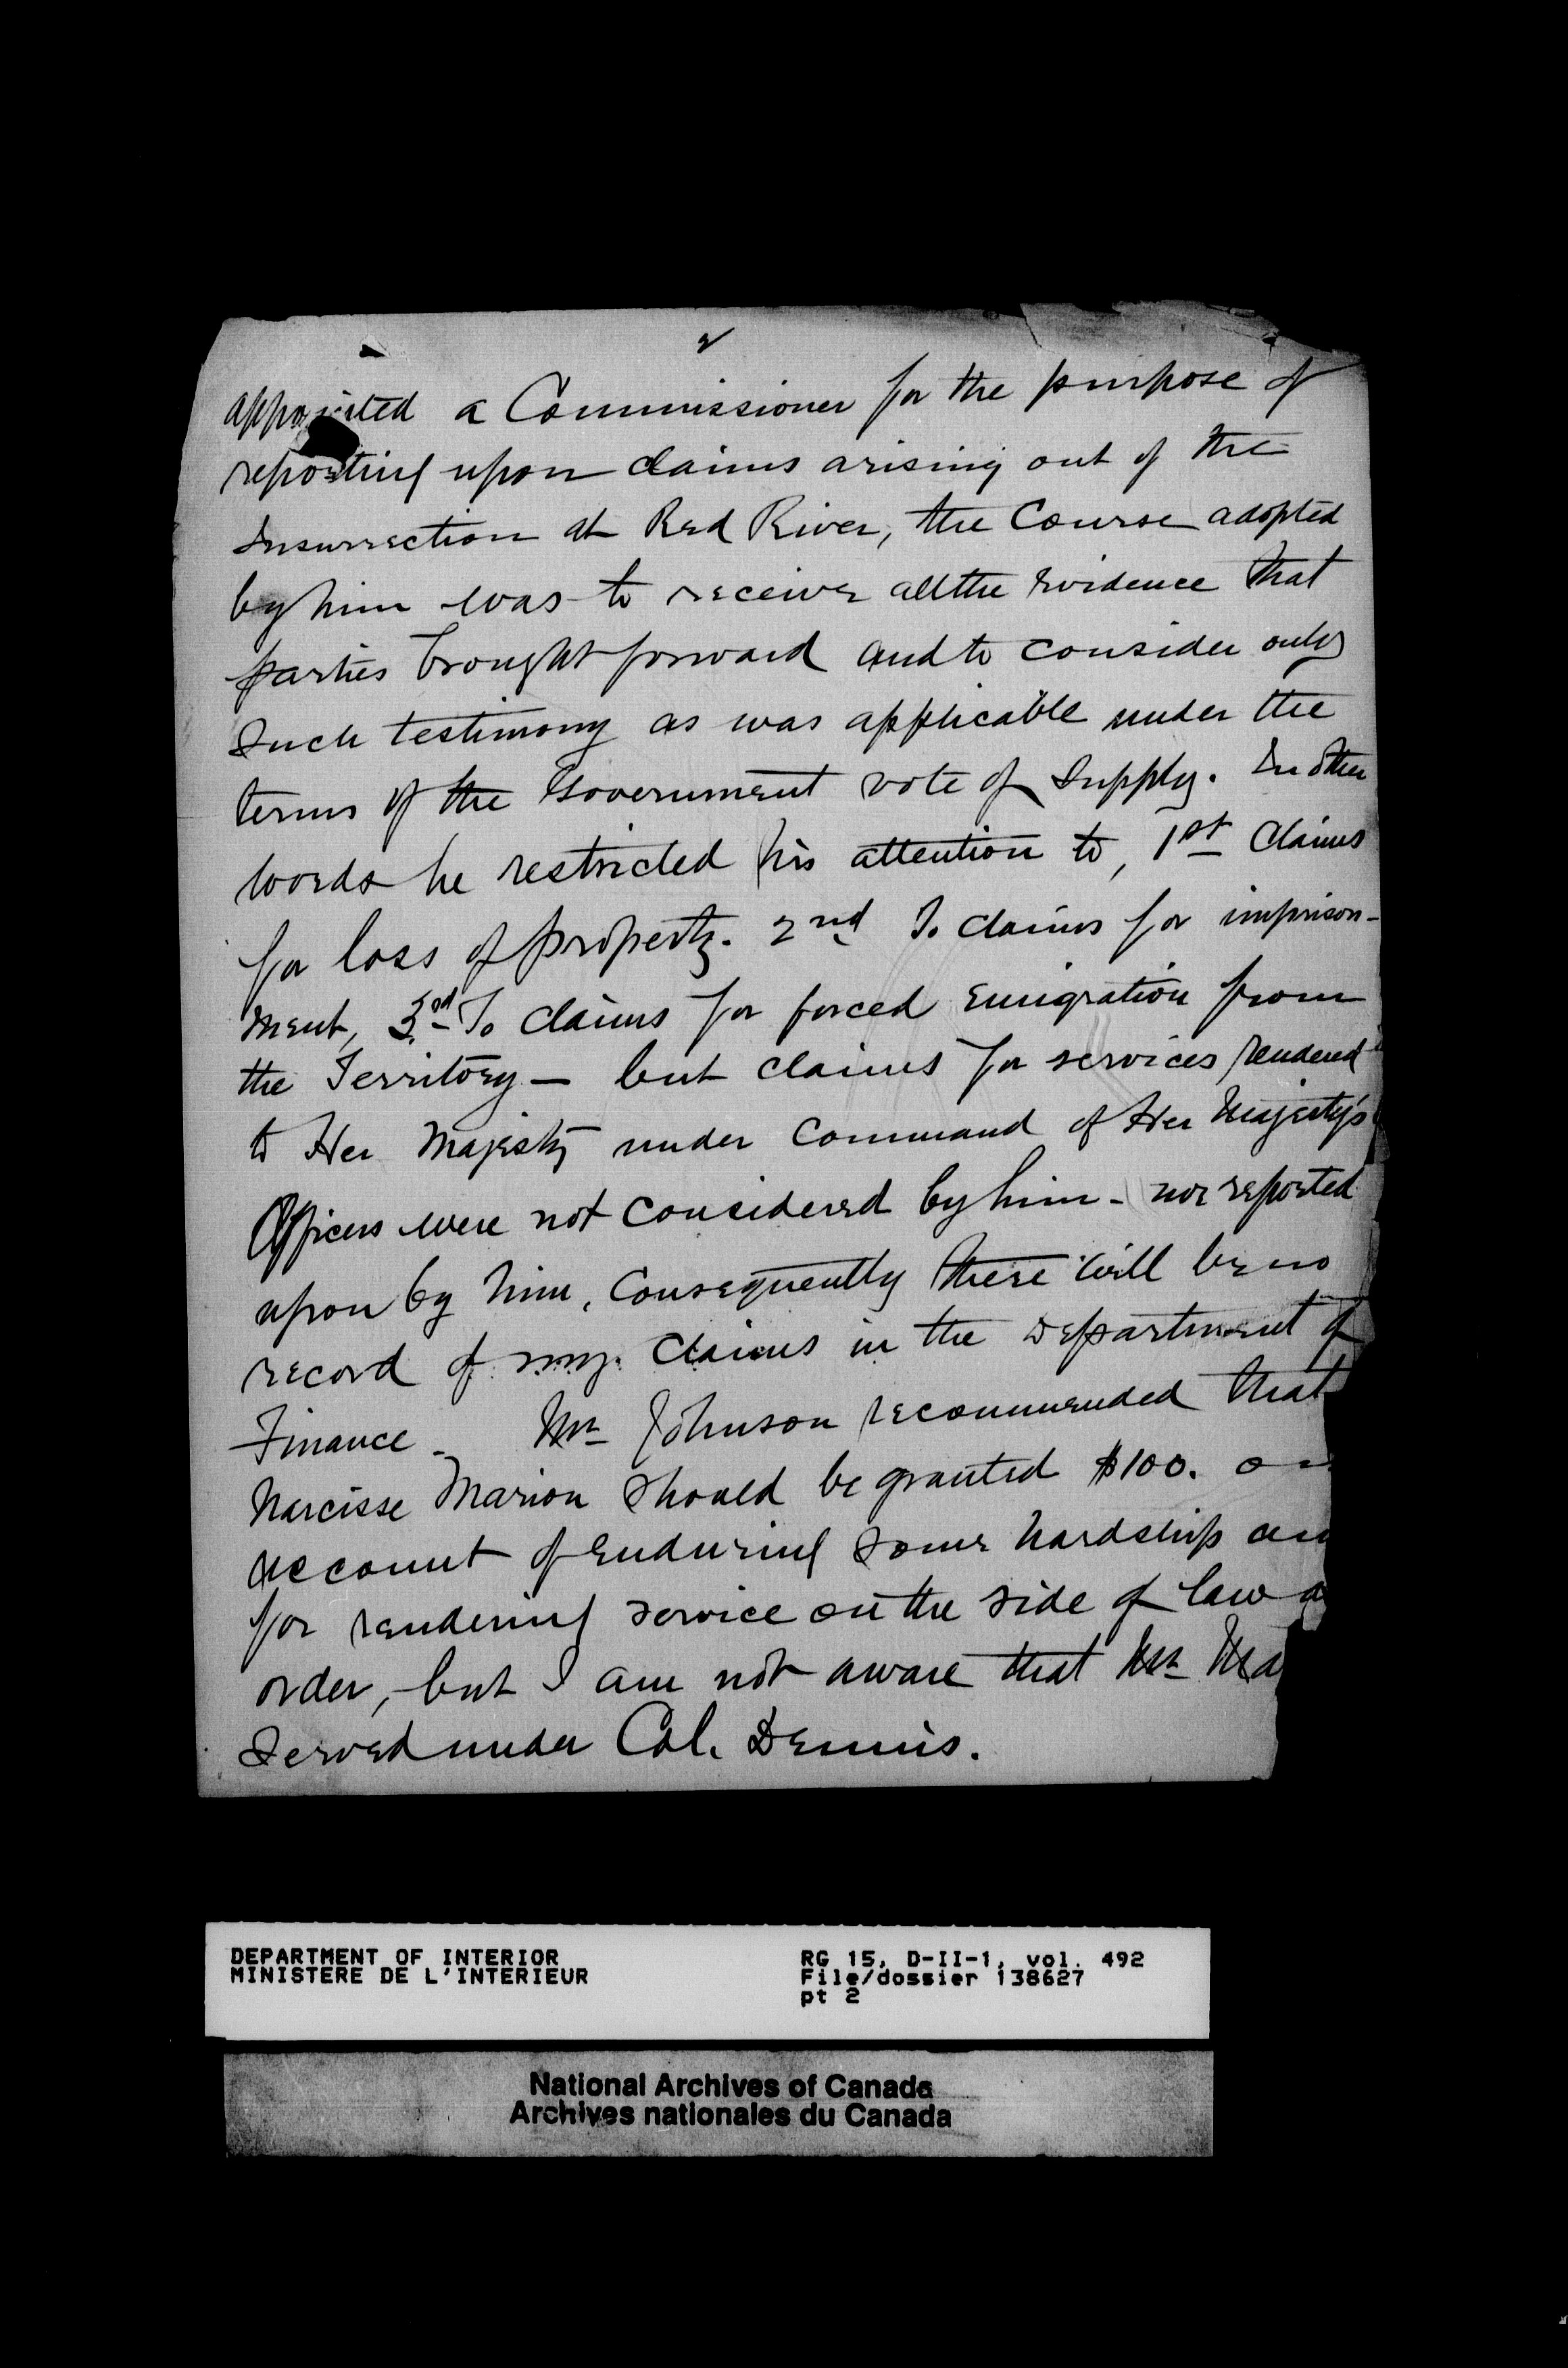 2
appointed a Commissioner for the purpose of
reporting upon claims arising out of the
Insurrection at Red River, the Course adopted
by him was to receive all the Evidence that
parties brought forward and to consider only
Such testimony as was applicable under the
terms of the Government vote of Supply. In other
words he restricted his attention to, 1st Claims
for loss of property. 2nd To claims for imprison-
ment, 3rd To Claims for forced Emigration from
the Territory — but claims for services rendered
to Her Majesty under Command of Her Majesty's
Officers were not Considered by him - nor reported
upon by him, Consequently there will be no
record of my claims in the Department of
Finance - Mr Johnson recommended that
Narcisse Marion Should be granted $100. on
account of Enduring Some hardship an
for rendering service on the side of law a
order, - but I am not aware that Mr Ma
Served under Col. Dennis.
DEPARTMENT OF INTERIOR
MINISTERE DE L'INTERIEUR
RG 15, D-II-1, vol. 492
File/dossier 138627
pt 2
National Archives of Canada
Archives nationales du Canada